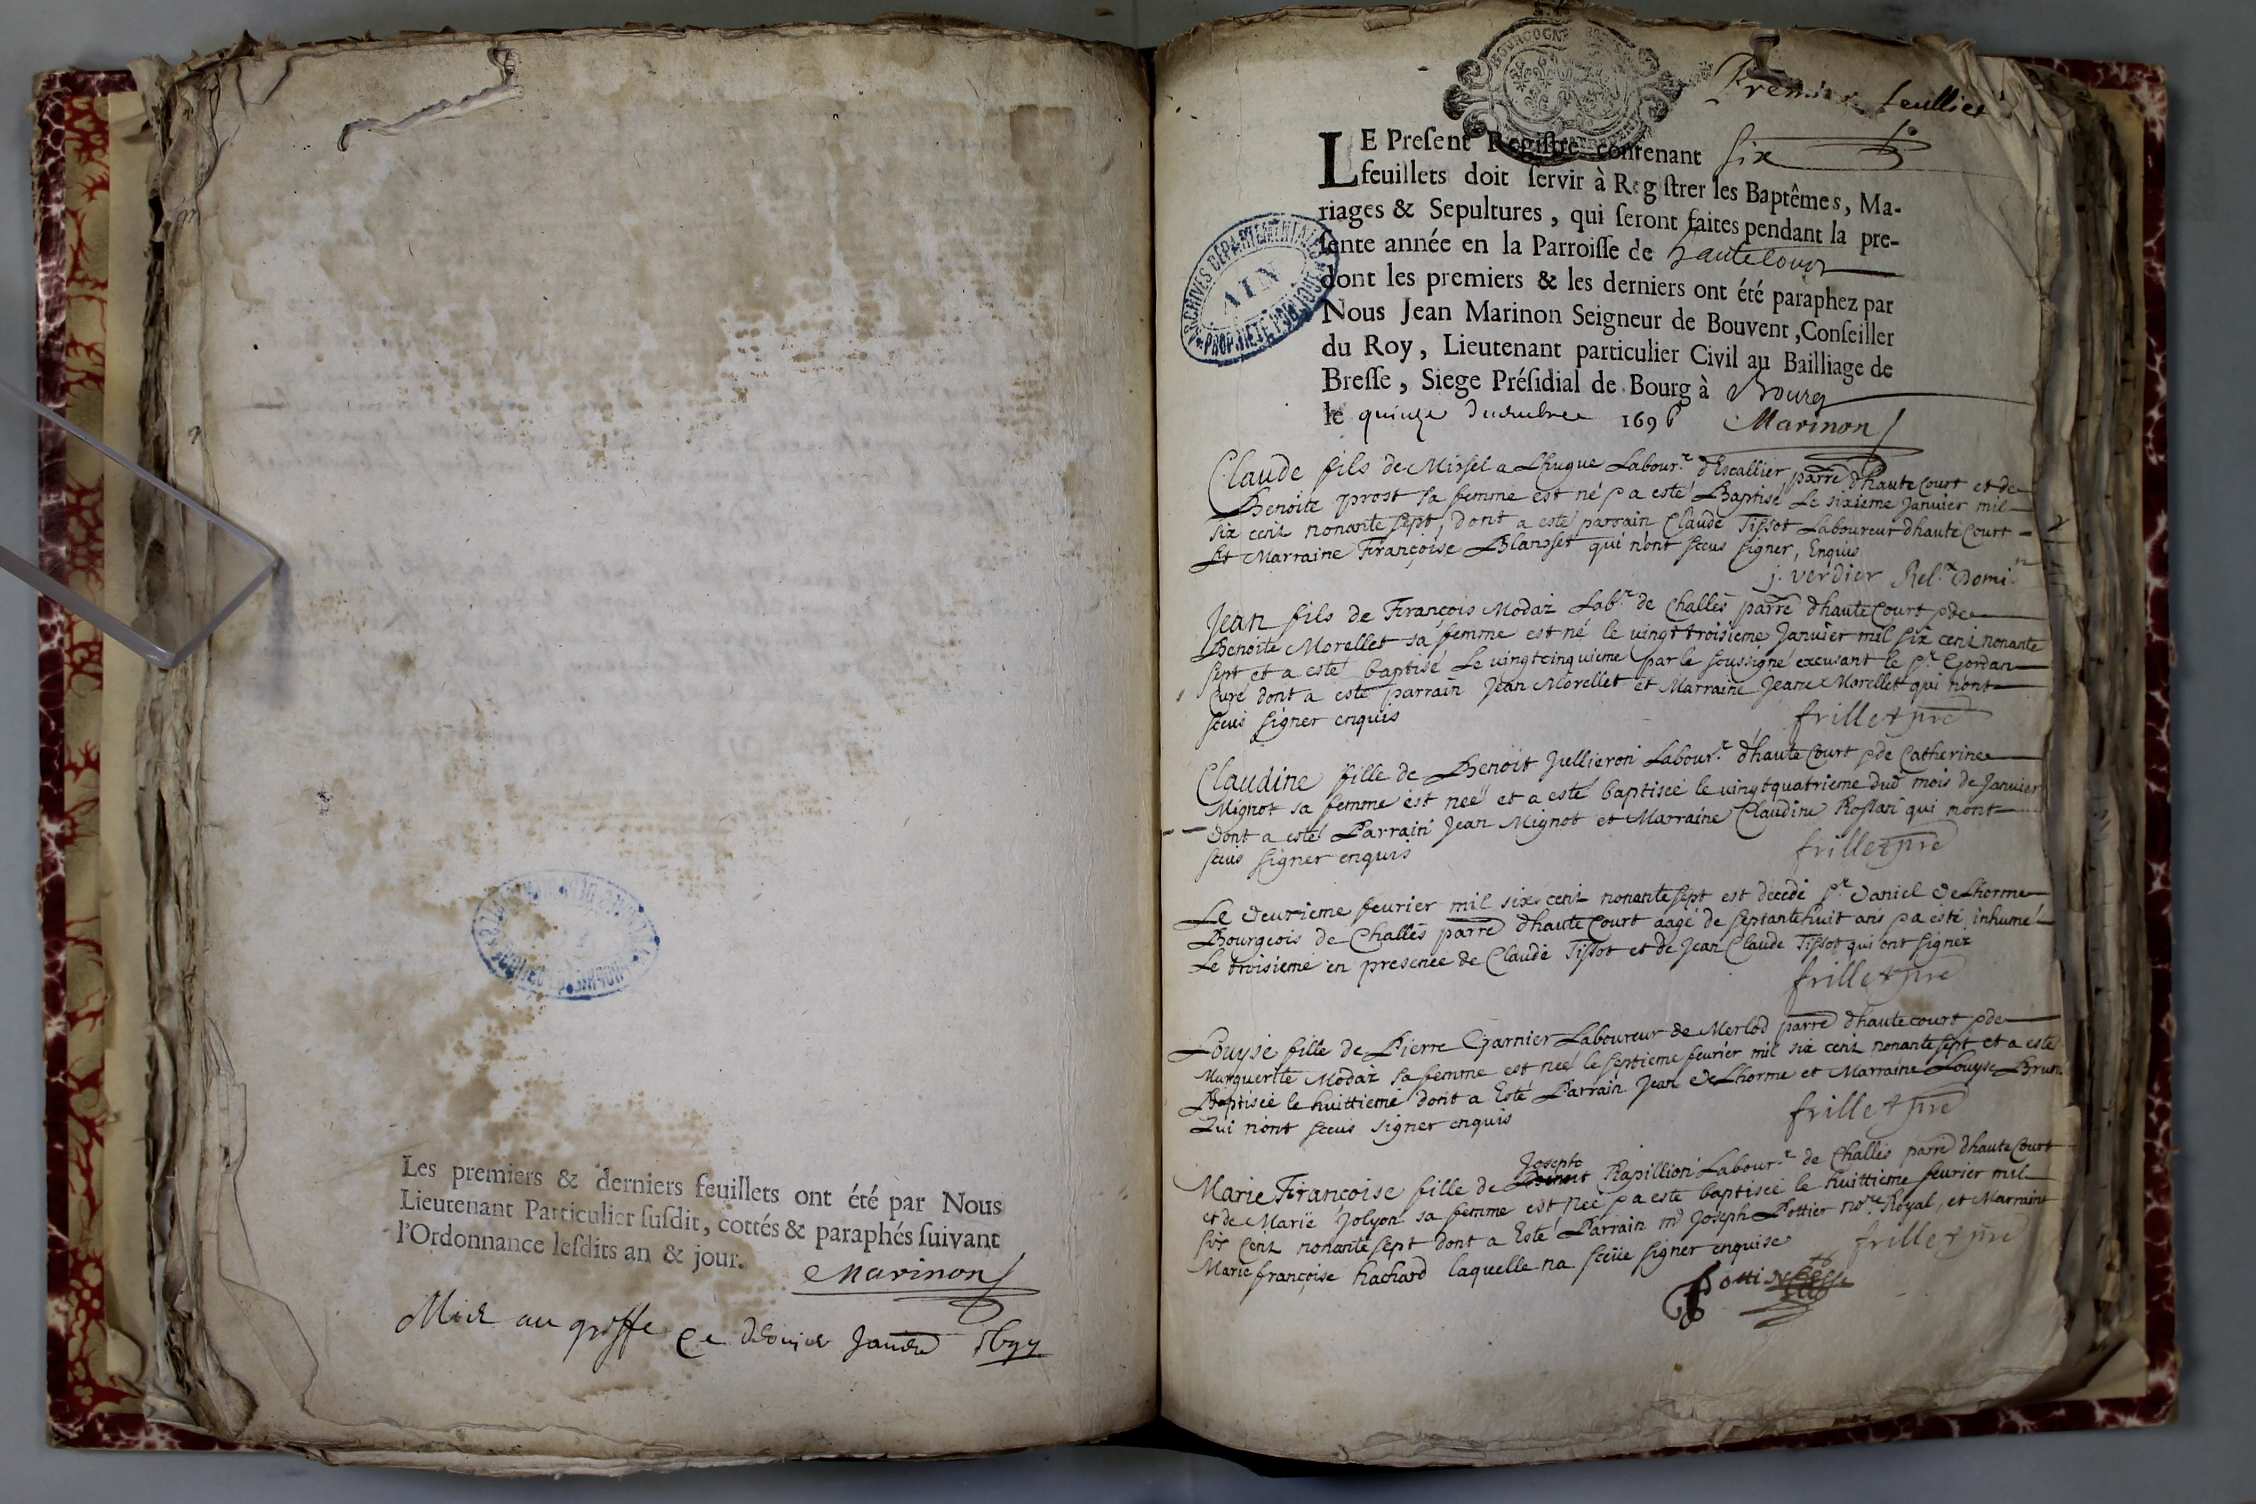 Les premiers & derniers feuillets ont été par Nous
Lieutenant Particulier susdit, cottés & paraphés suivant
l'Ordonnance lesdits an & jour.
Marinon
Mis au greffe ce 1697
BOURGOGNE
Premier feuillet
LE Present Registre contenant six
feuillets doit servir à Registrer les Baptêmes, Ma-
riages & Sepultures, qui seront faites pendant la pre-
sente année en la Parroisse de hautecourt
dont les premiers & les derniers ont été paraphez par
Nous Jean Marinon Seigneur de Bouvent, Conseiller
du Roy, Lieutenant particulier Civil au Bailliage de
Bresse, Siege Présidial de Bourg à Bourg
le quinze decembre 1696 Marinon
ARCHIVES DÉPARTEMENTALES
AIN
PROPRIÉTÉ PUBLIQUE
Claude fils de a Lhugue Labour.r d'Escallier parre dhaute Court et de
Benoite prost sa femme est né & a esté Baptisé Le sixieme Janvier mil
six cent nonante sept, dont a esté parrain Claude Tissot Laboureur dhaute Court
Et Marraine Françoise Blanset qui n'ont sceus signer, Enquis
j. verdier Rel.x Domi.n
Jean fils de François Modaz Lab.r de Challes parre dhaute Court & de
Benoite Morellet sa femme est né le vingt troisieme Janvier mil six cent nonante
sept et a esté baptisé Le vingtcinquieme par le soussigné excusant le s.r Gordan
Curé dont a esté parrain Jean Morellet et Marraine Jeane Morellet qui nont
sceus signer enquis
frillet pre
Claudine fille de Benoit Jullieron Labour.r d'haute Court & de Catherine
Mignot sa femme est neé et a esté baptiseé le vingtquatrieme dud mois de Janvier
Dont a esté Parrain Jean Mignot et Marraine Claudine Rossan qui n'ont
sceus signer enquis
frillet pre
Le deuxieme feurier mil six cent nonante sept est decedé s.r Daniel De Lhorme
Bourgeois de Challes parre dhaute Court aagé de septante huit ans & a esté inhumé
Le troisieme en presence de Claude Tissot et de Jean Claude Tissot qui ont signez
frillet pre
Louyse fille de Pierre Garnier Laboureur de Merlod parre dhautecourt & de
Marguerite Modaz sa femme est neé le septieme feurier mil six cent nonante sept et a esté
Baptiseé le huittieme dont a Esté Parrain Jean De Lhorme et Marraine Louyse Brun
Qui n'ont sceus signer enquis
frillet pre
Joseph
Marie Françoise fille de Benoit Rapillion Labour.r de Challes parre dhaute Court
et de Marie Jolyon sa femme est neé & a esté baptiseé le huittieme feurier mil
six Cent nonante sept dont a Esté Parrain m.e Joseph Pottier no.re Royal, et Marraine
Marie françoise hachard laquelle na sceüe signer enquise
frillet pre